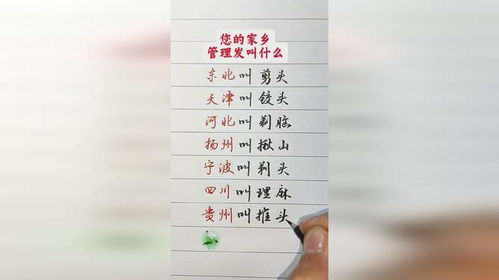 您的家乡
管理发叫什么
东北叫剪头
天津叫铰头
河北叫剃脑
扬州叫揪山
宁波叫剃头
四川叫理麻
贵州叫推头